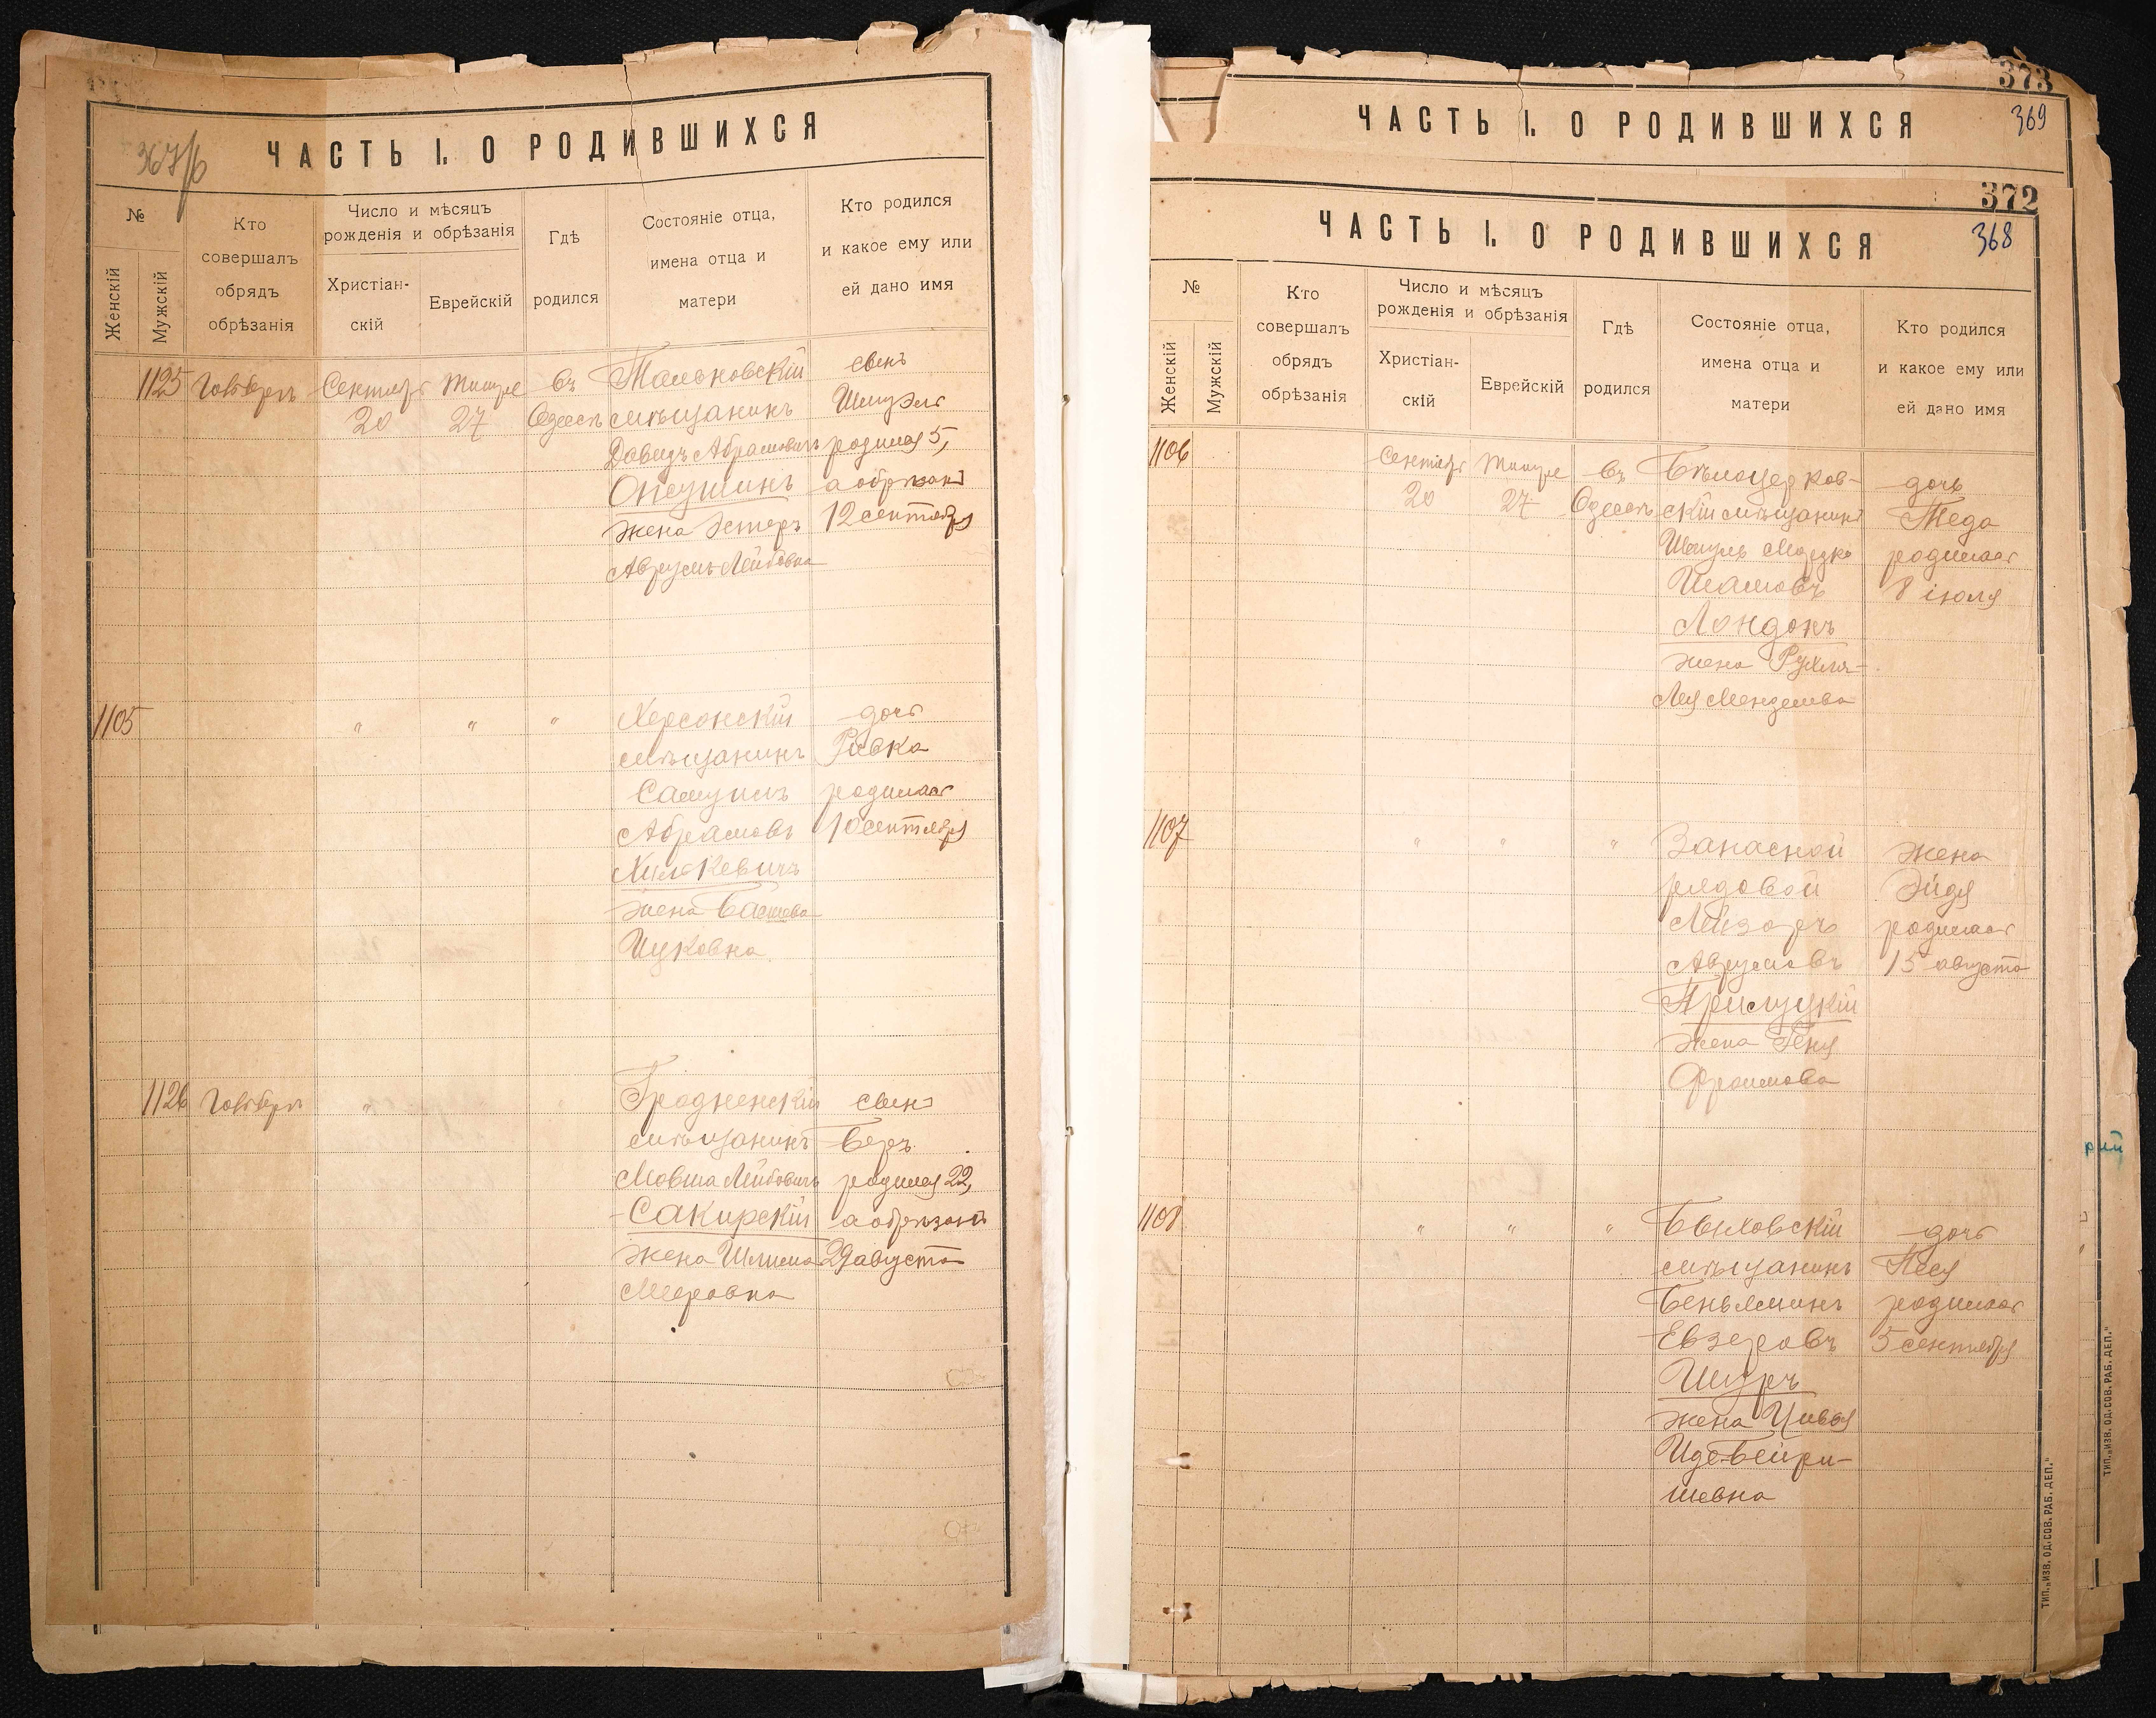 367/б
ЧАСТЬ I. О РОДИВШИХСЯ
№
Женскій
Мужскій
Кто
совершалъ
обрядъ
обрѣзанія
Число и мѣсяцъ
рожденія и обрѣзанія
Христіан-
скій
Еврейскій
Гдѣ
родился
Состояніе отца,
имена отца и
матери
Кто родился
и какое ему или
ей дано имя
1125
Сентября
20
Тишре
27
въ
Одессѣ
Тальновскій
мѣщанинъ
Давидъ Абрамовичъ
жена Эстеръ
Аврумъ-Лейбовна
сынъ
Шмуэль
родился 5,
а обрѣзанъ
12 сентября
1105
"
"
"
Херсонскій
мѣщанинъ
Самуилъ
Абрамовъ
Хилькевичъ
жена Басшева
Ицковна
дочь
Ривка
родилась
10 сентября
1126
"
Гродненскій
мѣщанинъ
Мовша Лейбовичъ
Сакирскій
жена Шлима
Мееровна
сынъ
Беръ
родился 22,
а обрѣзанъ
29 августа
373
ЧАСТЬ I. О РОДИВШИХСЯ
369
372
ЧАСТЬ I. О РОДИВШИХСЯ
368
№
Женскій
Мужскій
Кто
совершалъ
обрядъ
обрѣзанія
Число и мѣсяцъ
рожденія и обрѣзанія
Христіан-
скій
Еврейскій
Гдѣ
родился
Состояніе отца,
имена отца и
матери
Кто родился
и какое ему или
ей дано имя
1106
Сентября
20
Тишре
27
въ
Одессѣ
Бѣлоцерков-
скій мѣщанинъ
Шмуль Мордко
Лондонъ
жена Рухля-
Лея Менделева
дочь
родилась
8 іюля
1107
"
"
"
Запасной
рядовой
Лейзоръ
Аврумовъ
Прилуцкій
жена Геня
Фроимова
жена
Эйдя
родилась
15 августа
1108
"
"
"
Быховскій
мѣщанинъ
Беньяминъ
Евзеровъ
Шуръ
жена Цивья
Иде-Бейри-
шевна
дочь
Песя
родилась
5 сентября
ТИП. „ИЗВ. ОД. СОВ. РАБ. ДЕП."
ТИП. „ИЗВ. ОД. СОВ. РАБ. ДЕП."